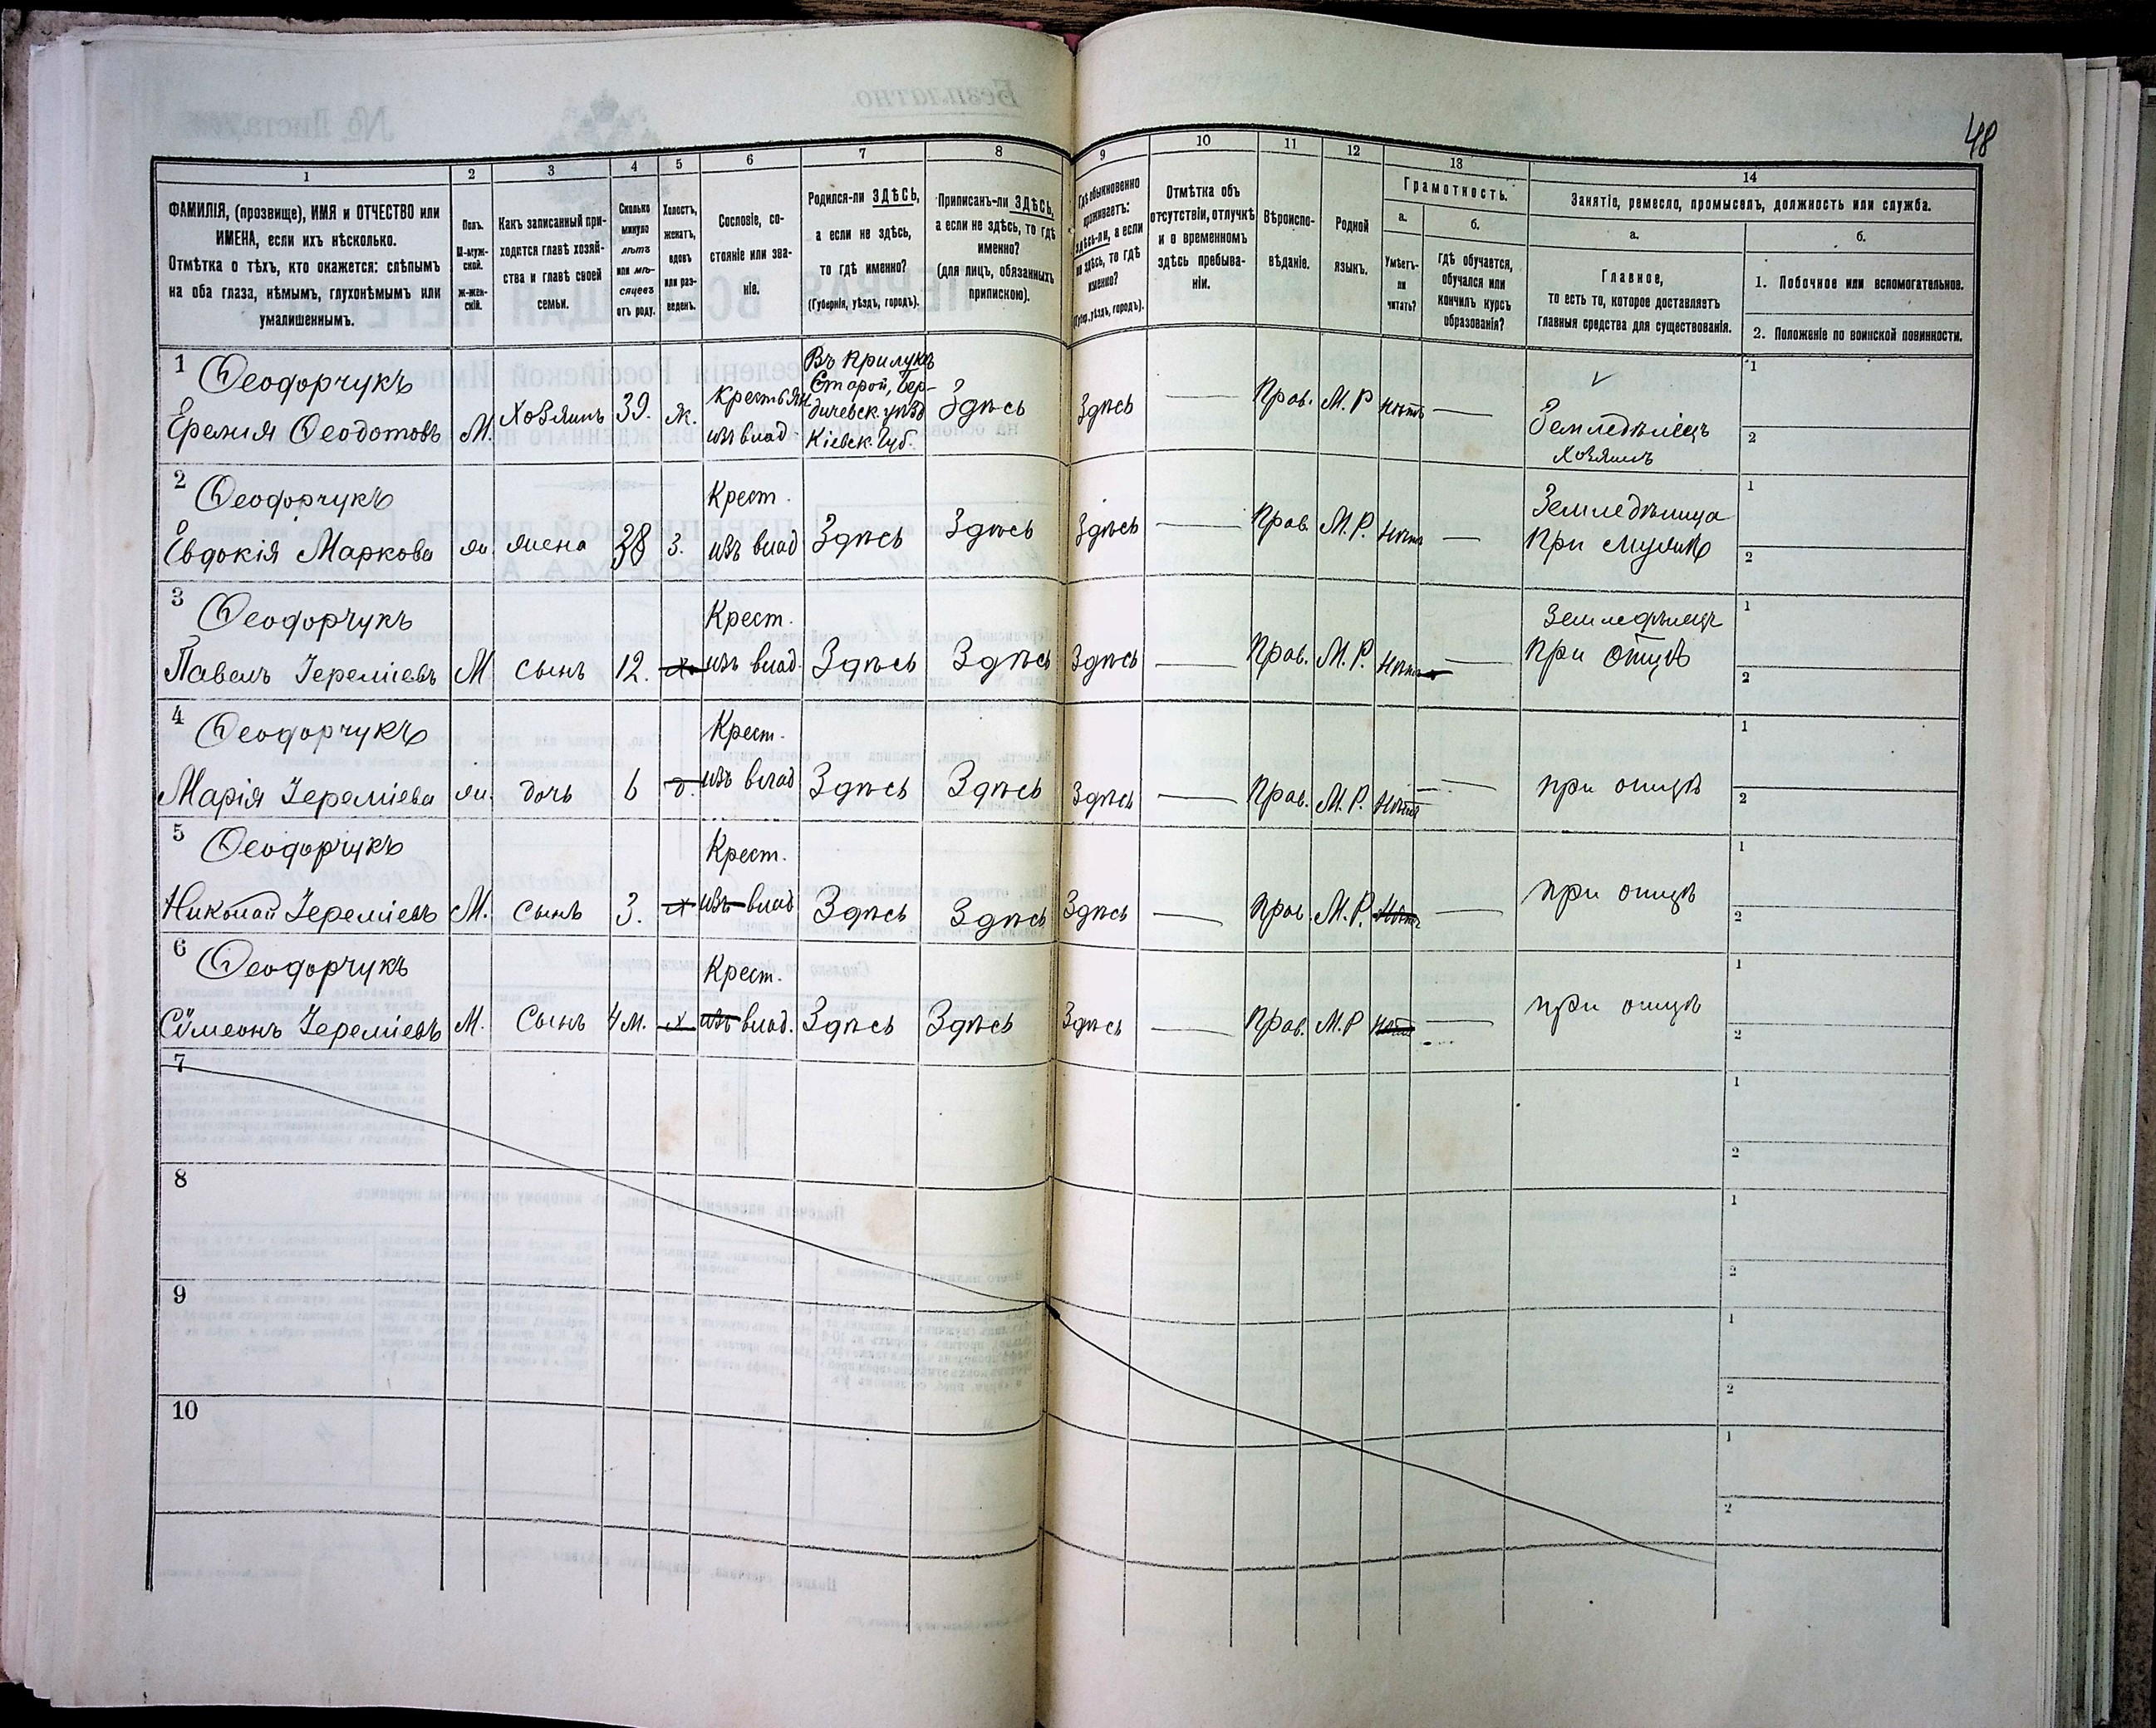 48
1 2 3 4 5 6 7 8 9 10 11 12 13 14
ФАМИЛІЯ, (прозвище), ИМЯ и ОТЧЕСТВО или
ИМЕНА, если ихъ нѣсколько.
Отмѣтка о тѣхъ, кто окажется: слѣпымъ
на оба глаза, нѣмымъ, глухонѣмымъ или
умалишеннымъ.
Полъ.
М-муж-
ской.
ж-жен-
скій.
Какъ записанный при-
ходится главѣ хозяй-
ства и главѣ своей
семьи.
Сколько
минуло
лѣтъ
или мѣ-
сяцевъ
отъ роду.
Холостъ,
женатъ,
вдовъ
или раз-
веденъ.
Сословіе, со-
стояніе или зва-
ніе.
Родился-ли ЗДѢСЬ,
а если не здѣсь,
то гдѣ именно?
(Губернія, уѣздъ, городъ).
Приписанъ-ли ЗДѢСЬ,
а если не здѣсь, то гдѣ
именно?
(для лицъ, обязанныхъ
припискою).
Гдѣ обыкновенно
проживаетъ:
здѣсь-ли, а если
не здѣсь, то гдѣ
именно?
(Губер., уѣздъ, городъ).
Отмѣтка объ
отсутствіи, отлучкѣ
и о временномъ
здѣсь пребыва-
ніи.
Вѣроиспо-
вѣданіе.
Родной
языкъ.
Грамотность.
а.
Умѣетъ-
ли
читать?
б.
гдѣ обучается,
обучался или
кончилъ курсъ
образованія?
Занятіе, ремесло, промыселъ, должность или служба.
а.
Главное,
то есть то, которое доставляетъ
главныя средства для существованія.
б.
1. Побочное или вспомогательное.
2. Положеніе по воинской повинности.
1 Ѳеодорчукъ
Еремия Ѳеодотовъ М. Хозяинъ 39. ж. Крестьян. изъ влад.
Въ Прилукѣ
Старой, Бер-
дичевск. уѣзд
Кіевск. Губ.
Здѣсь Здѣсь — Прав. М. Р нѣтъ — Земледѣлецъ
Хозяинъ
1
2
2 Ѳеодорчукъ Крест. Земледѣлица
Евдокія Маркова ж. жена 38 З. изъ влад Здѣсь Здѣсь Здѣсь — Прав. М. Р. Нѣтъ — при мужѣ
1
2
3 Ѳеодорчукъ Крест. Земледѣлецъ
Павелъ Іереміевъ М сынъ 12. х. изъ влад. Здѣсь Здѣсь Здѣсь — Прав. М. Р. Нѣтъ — при отцѣ
1
2
4 Ѳеодорчукъ Крест.
Марія Іереміева ж. дочь 6 д. изъ влад Здѣсь Здѣсь Здѣсь — Прав. М. Р. Нѣтъ — при отцѣ
1
2
5 Ѳеодорчукъ Крест.
Николай Іереміевъ М. сынъ 3. х изъ влад Здѣсь Здѣсь Здѣсь — Прав. М. Р. Нѣтъ — при отцѣ
1
2
6 Ѳеодорчукъ Крест.
Сѵмеонъ Іереміевъ М. Сынъ 4 м. х изъ влад. Здѣсь Здѣсь Здѣсь — Прав. М. Р Нѣтъ — при отцѣ
1
2
7
1
2
8
1
2
9
1
2
10
1
2